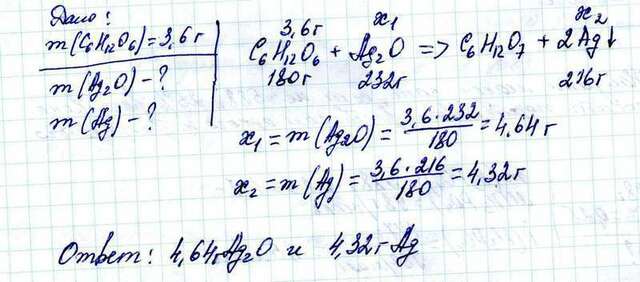 Дано:
m(C₆H₁₂O₆)=3,6г
m(Ag₂O)-?
m(Ag)-?
3,6г x₁ x₂
C₆H₁₂O₆ + Ag₂O => C₆H₁₂O₇ + 2Ag↓
180г 232г 216г
x₁ = m(Ag₂O) = 3,6·232/180 = 4,64г
x₂ = m(Ag) = 3,6·216/180 = 4,32г
Ответ: 4,64г Ag₂O и 4,32г Ag